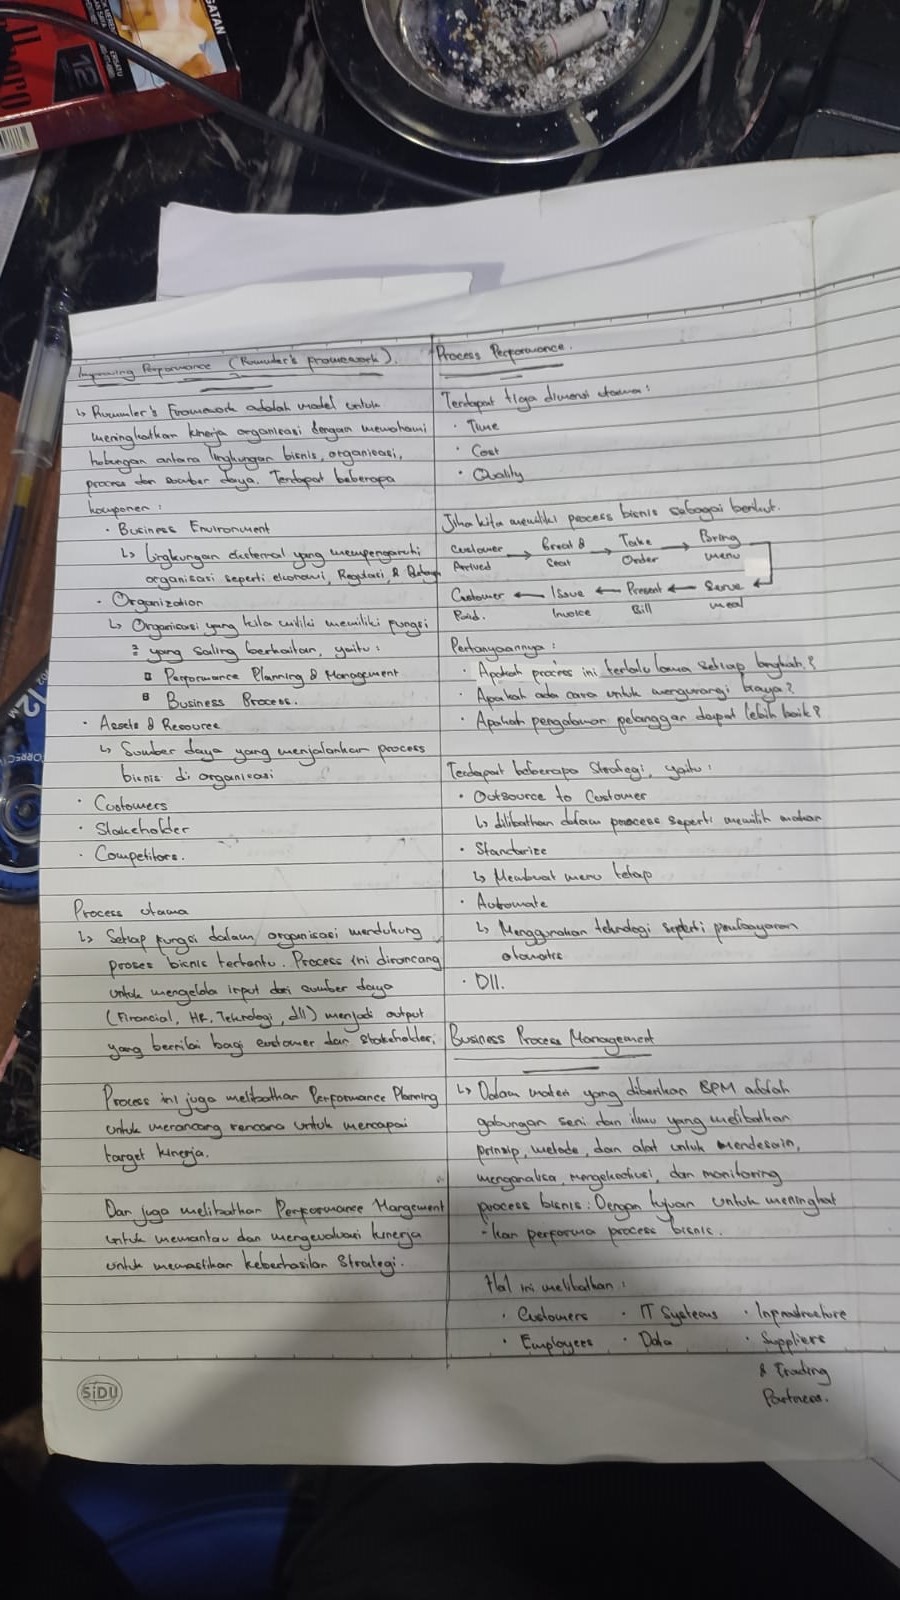 SATAN
12
Improving Performance (Rummler's framework).
↳ Rummler's Framework adalah model untuk
meningkatkan kinerja organisasi dengan memahami
hubungan antara lingkungan bisnis, organisasi,
process dan sumber daya. Terdapat beberapa
komponen :
· Business Environment
↳ Lingkungan eksternal yang mempengaruhi
organisasi seperti ekonomi, Regulasi, &
· Organization
↳ Organisasi yang kita miliki memiliki fungsi
2 yang saling berkaitan, yaitu :
Performance Planning & Management
Business Process.
· Assets & Resource
↳ Sumber daya yang menjalankan process
bisnis di organisasi
· Customers
· Stakeholder
· Competitors.
Process utama
↳ Setiap fungsi dalam organisasi mendukung
proses bisnis tertentu. Process ini dirancang
untuk mengelola input dari sumber daya
(Financial, HR, Teknologi, dll) menjadi output
yang bernilai bagi customer dan stakeholder.
Process ini juga melibatkan Performance Planning
untuk merancang rencana untuk mencapai
target kinerja.
Dan juga melibatkan Performance Mangement
untuk memantau dan mengevaluasi kinerja
untuk memastikan keberhasilan Strategi.
SiDU
Process Performance.
Terdapat tiga dimensi utama :
· Time
· Cost
· Quality
Jika kita memiliki process bisnis sebagai berikut.
Customer Arrived → Greet & Seat → Take Order → Bring menu
Customer Paid. ← Issue Invoice ← Present Bill ← Serve meal
Pertanyaannya :
· Apakah process ini terlalu lama setiap langkah?
· Apakah ada cara untuk mengurangi biaya?
· Apakah pengalaman pelanggan dapat lebih baik?
Terdapat beberapa Strategi, yaitu :
· Outsource to Customer
↳ dilibatkan dalam process seperti memilih makan
· Standarize
↳ Membuat menu tetap
· Automate
↳ Menggunakan teknologi seperti pembayaran
otomatis
· Dll.
Business Process Management
↳ Dalam materi yang diberikan BPM adalah
gabungan seni dan ilmu yang melibatkan
prinsip, metode, dan alat untuk mendesain,
menganalisa, mengeksekusi, dan monitoring
process bisnis. Dengan tujuan untuk meningkat
-kan performa process bisnis.
Hal ini melibatkan :
· Customers · IT Systems · Infrastructure
· Employees · Data · Suppliers
& Trading
Partners.